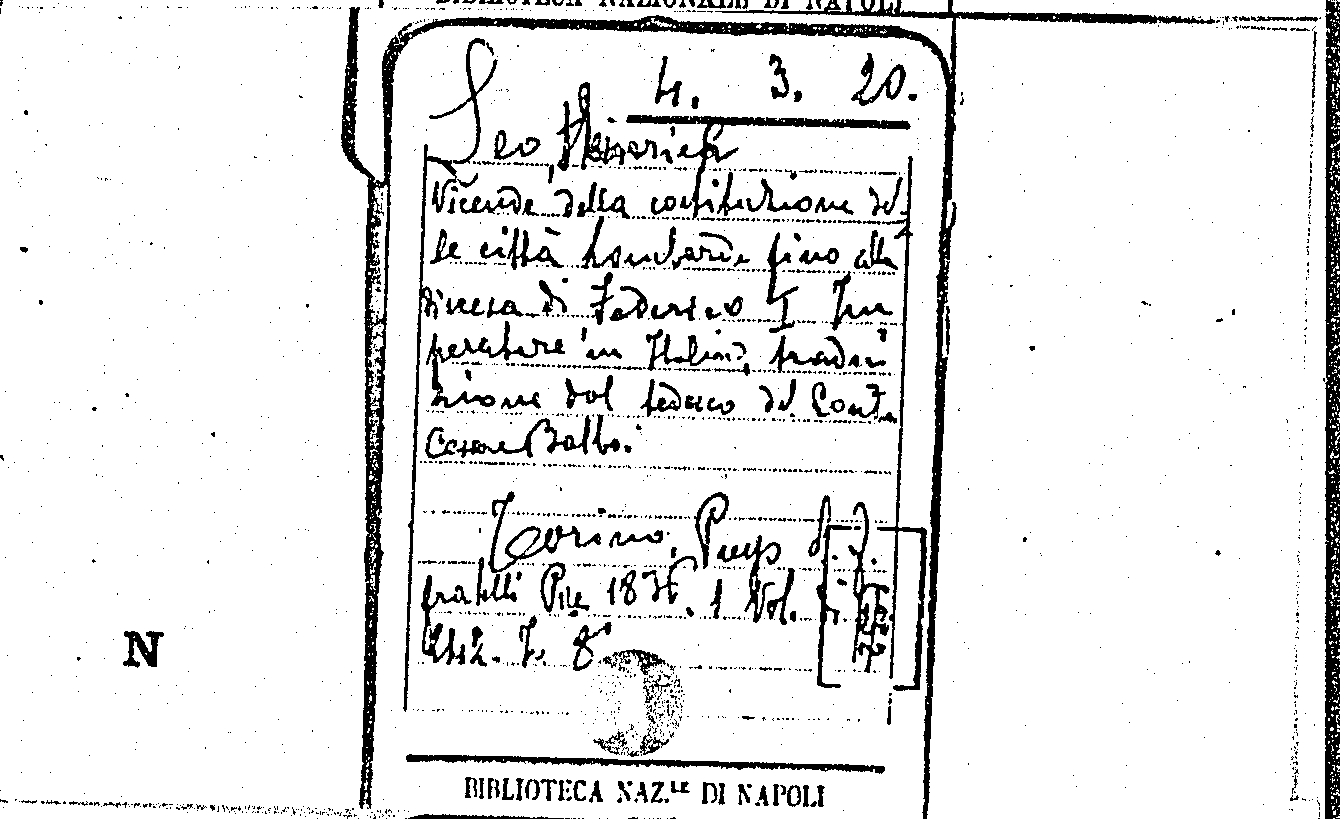 BIBLIOTECA NAZIONALE DI NAPOLI
4. 3. 20.
Leo, Heinrich
Vicende della costituzione del
le città Lombarde fino alla
discesa di Federico I Im
peratore in Italia, tradu
zione dal tedesco del Conte
Cesare Balbo.
Torino,
fratelli 1836. 1 Vol. di
8°
N
BIBLIOTECA NAZ.LE DI NAPOLI